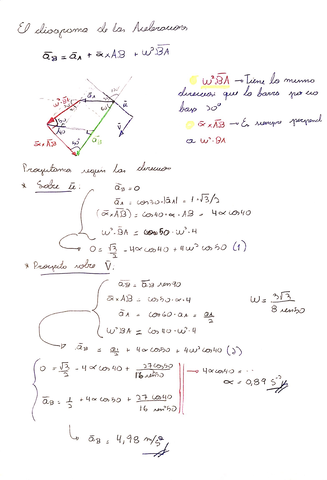 El diagrama de las Aceleraciones
āB = āA + ᾱ×AB + ω²BA
ω²BA → Tiene la misma
direccion que la barra pero
bajo 30°
ᾱ×AB → Es siempre perpend
a ω²·BA
Proyectamos segun las direcciones
* Sobre ū:
āB = 0
āA = cos30·|āA| = 1·√3/2
(ᾱ×AB) = cos40·α·AB = 4αcos40
ω²·BA = cos50·ω²·4
0 = √3/2 - 4αcos40 + 4ω²cos50 (1)
* Proyecto sobre V̄:
āB = āB sen90
ᾱ×AB = cos50·α·4
āA = cos60·aA = aA/2
ω²BA = cos40·ω²·4
ω = 3√3 / 8 sen50
āB = a/2 + 4αcos50 + 4ω²cos40 (2)
0 = √3/2 - 4αcos40 + 27cos50 / 16 sen²50
→ 4αcos40 = ...
α = 0,89 s⁻²
āB = 1/2 + 4αcos50 + 27 cos40 / 16 sen²50
āB = 4,98 m/s²